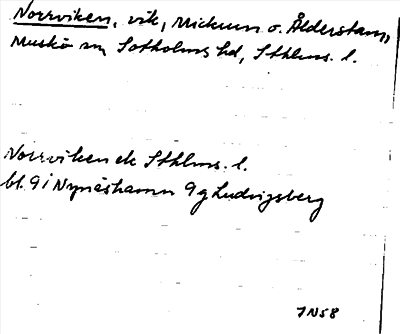 Norrviken, vik, Mickrum o. Ålderstam,
Muskö sn, Sotholms hd, Sthlms. l.
Norrviken ek Sthlms. l.
bl. 9 i Nynäshamn 9 g Ludvigsberg
7 N 5 8